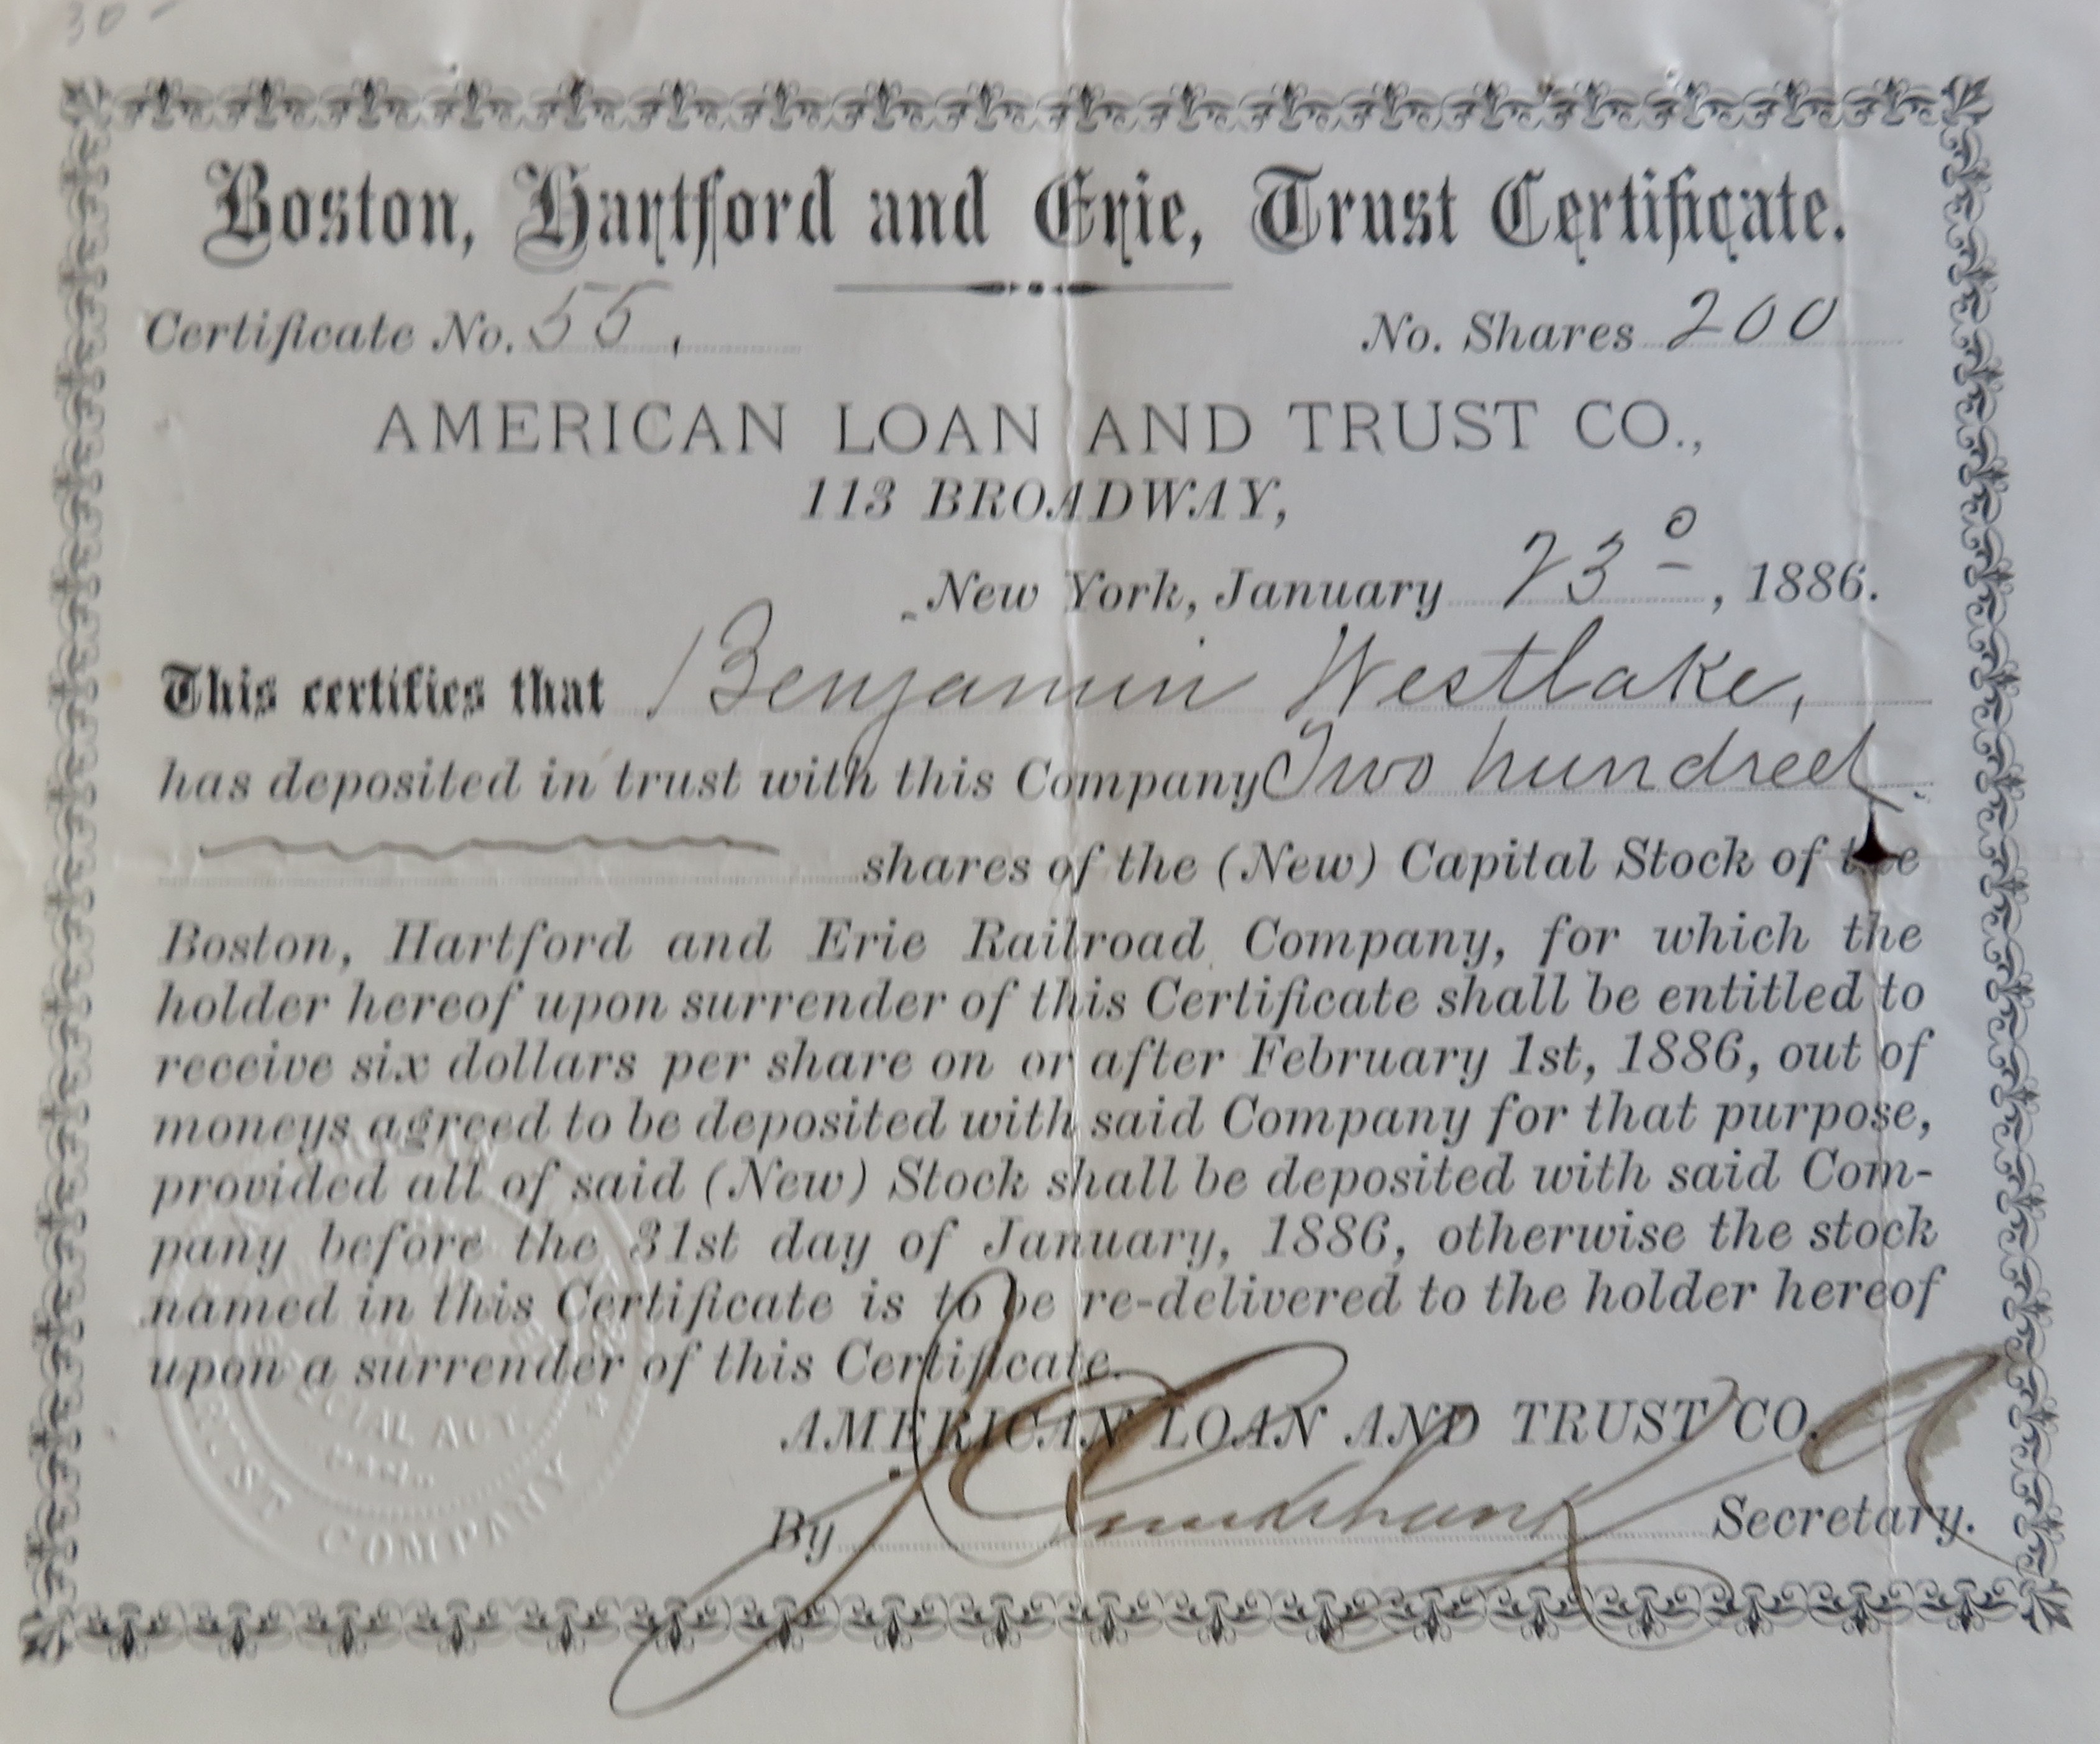 30 -
Boston, Hartford and Erie, Trust Certificate.
Certificate No. 55, No. Shares 200
AMERICAN LOAN AND TRUST CO.,
113 BROADWAY,
New York, January 23d, 1886.
This certifies that Benjamin Westlake,
has deposited in trust with this Company Two hundred
shares of the (New) Capital Stock of the
Boston, Hartford and Erie Railroad Company, for which the
holder hereof upon surrender of this Certificate shall be entitled to
receive six dollars per share on or after February 1st, 1886, out of
moneys agreed to be deposited with said Company for that purpose,
provided all of said (New) Stock shall be deposited with said Com-
pany before the 31st day of January, 1886, otherwise the stock
named in this Certificate is to be re-delivered to the holder hereof
upon a surrender of this Certificate.
AMERICAN LOAN AND TRUST CO.
By Secretary.
SPECIAL ACT
TRUST COMPANY